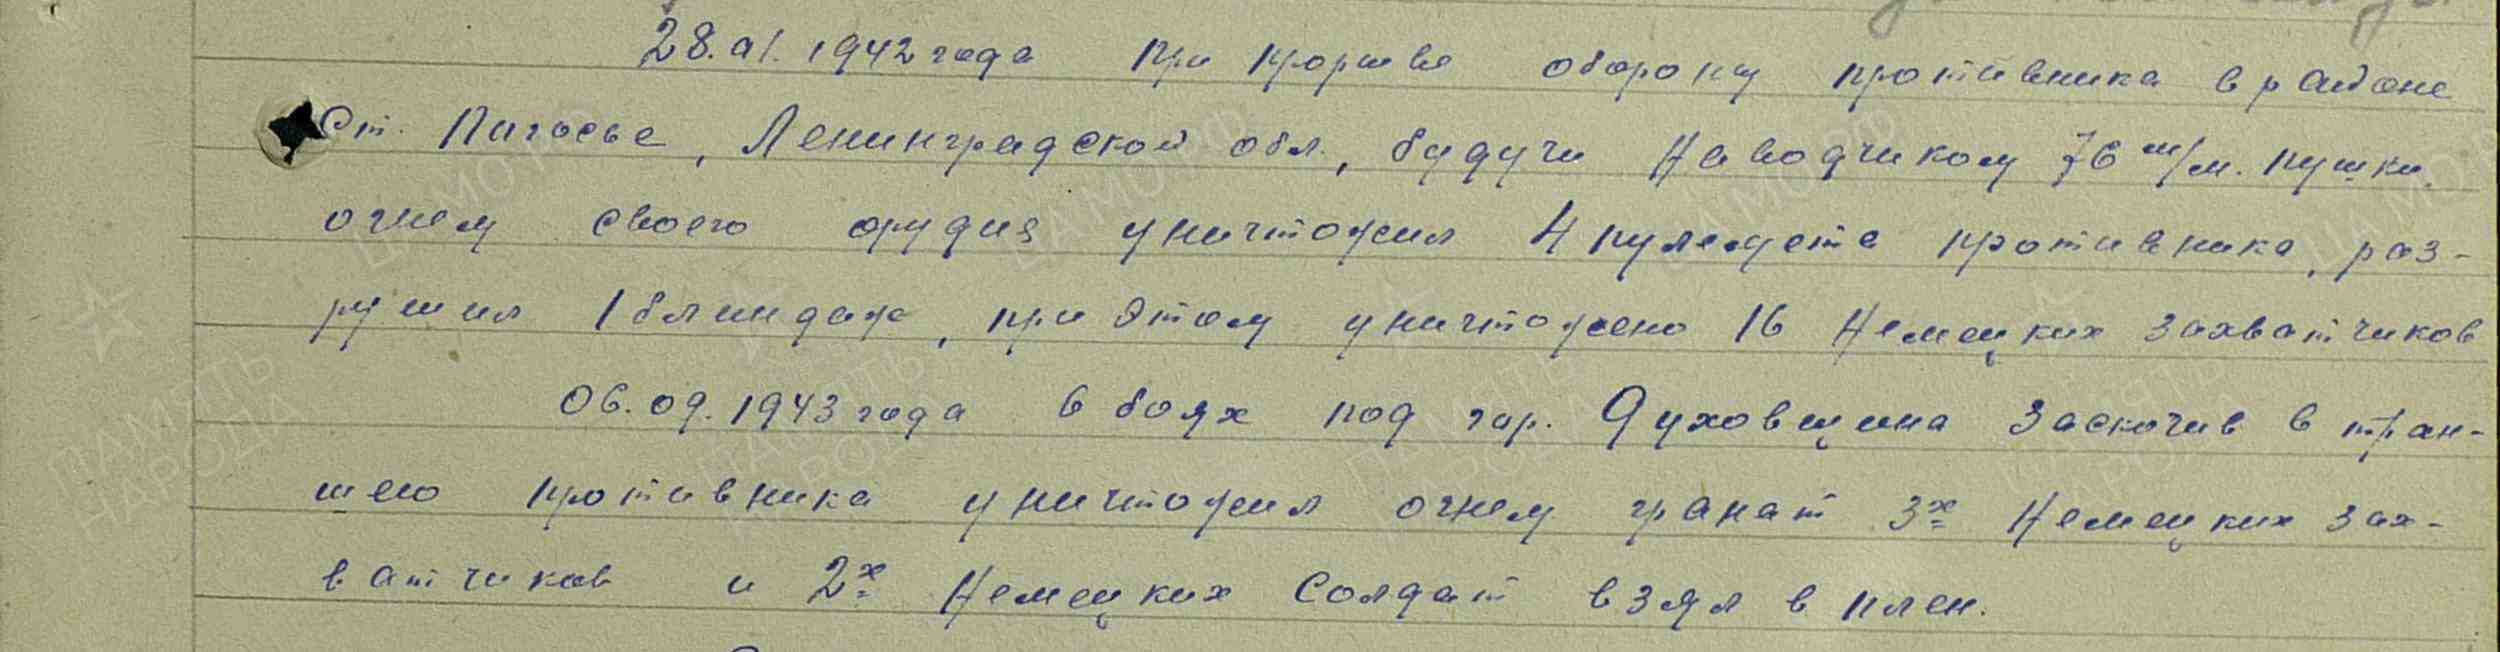 28.01.1942 года при прорыве обороны противника в районе
ст. Погостье, Ленинградской обл., будучи наводчиком 76 м/м. пушки,
огнем своего орудия уничтожил 4 пулемета противника, раз-
рушил 1 блиндаж, при этом уничтожено 16 немецких захватчиков
06.09.1943 года в боях под гор. Духовщина заскочив в тран-
шею противника уничтожил огнем гранат 3х немецких зах-
ватчиков и 2х немецких солдат взял в плен.
ЦАМО.РФ
ПАМЯТЬ
НАРОДА